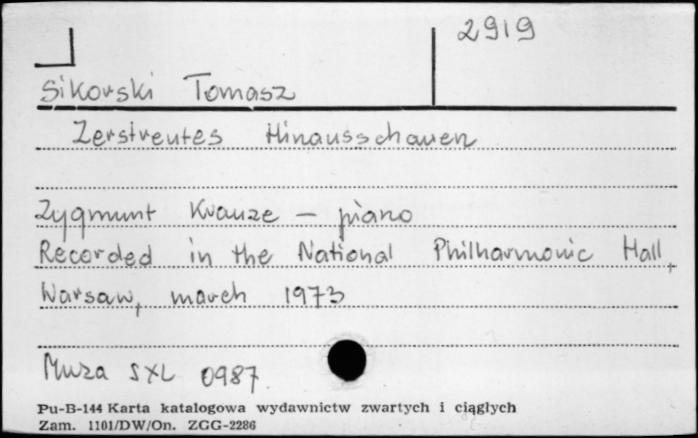 2919
Sikorski Tomasz
Zerstreutes Hinausschauen
Zygmunt Krauze – piano
Recorded in the National Philharmonic Hall,
Warsaw, march 1973
Muza SXL 0987
Pu-B-144 Karta katalogowa wydawnictw zwartych i ciągłych
Zam. 1101/DW/On. ZGG-2286